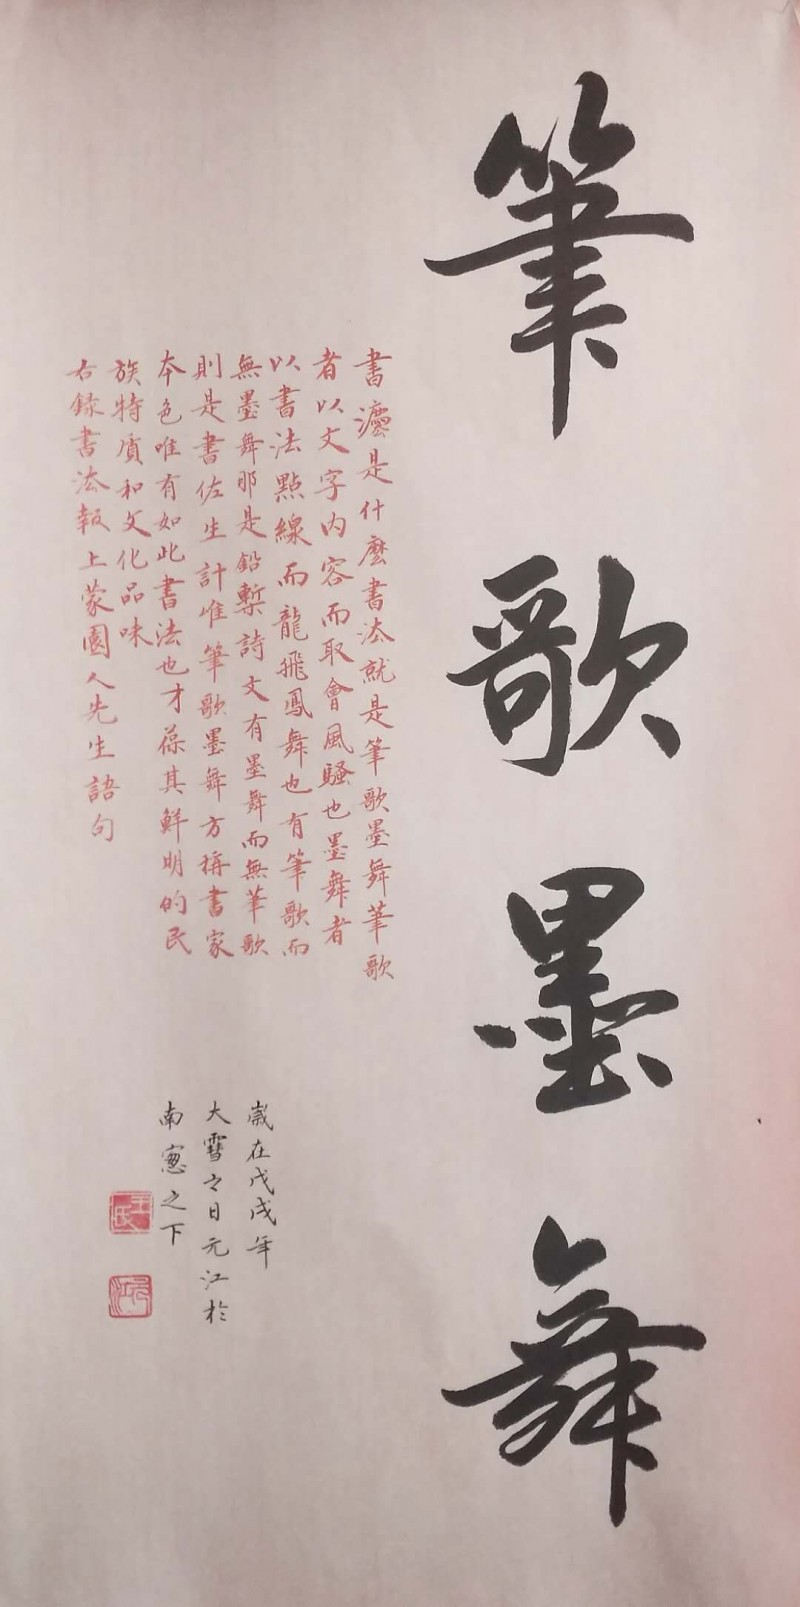 筆歌墨舞
書灋是什麼書法就是筆歌墨舞筆歌
者以文字内容而取會風騷也墨舞者
以書法點線而龍飛鳳舞也有筆歌而
無墨舞那是鉛槧詩文有墨舞而無筆歌
則是書佐生計惟筆歌墨舞方稱書家
本色唯有如此書法也才葆其鮮明的民
族特质和文化品味
右録書法報上蒙園人先生語句
歲在戊戌年
大雪之日元江於
南窻之下
王氏
元江